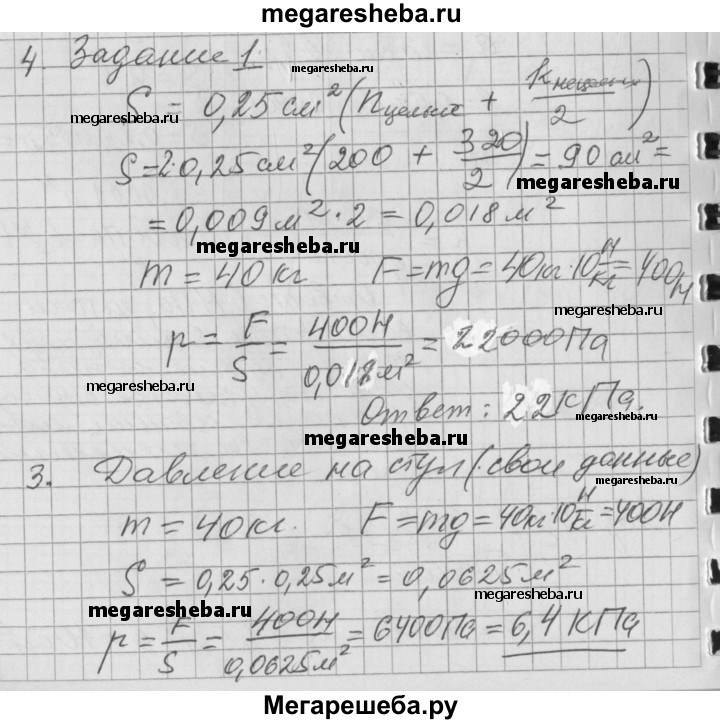 megaresheba.ru
4. Задание 1.
megaresheba.ru
S = 0,25 см² (nцелых + kнецелых/2)
megaresheba.ru
S = 2·0,25 см² (200 + 320/2) = 90 см² =
megaresheba.ru
= 0,009 м² · 2 = 0,018 м²
megaresheba.ru
m = 40 кг F = mg = 40 кг · 10 Н/кг = 400 Н
p = F/S = 400 Н/0,018 м² = 22000 Па
megaresheba.ru
Ответ: 22 кПа.
megaresheba.ru
megaresheba.ru
3. Давление на стул (свои данные)
megaresheba.ru
m = 40 кг. F = mg = 40 кг · 10 Н/кг = 400 Н
S = 0,25 · 0,25 м² = 0,0625 м²
megaresheba.ru
megaresheba.ru
p = F/S = 400 Н/0,0625 м² = 6400 Па = 6,4 КПа
Мегарешеба.ру